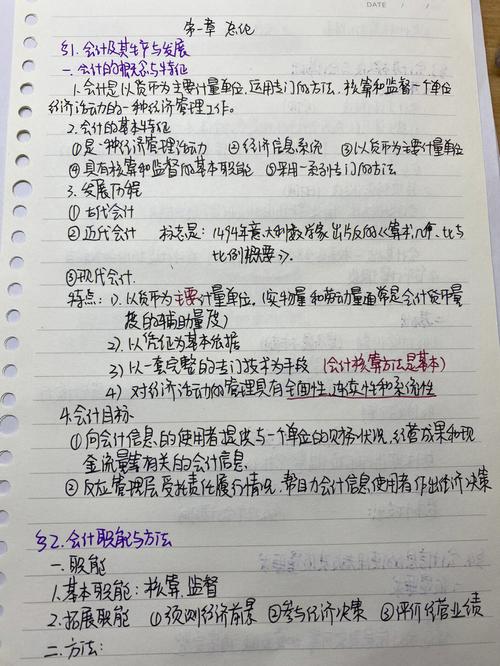 DATE / /
第一章 总论
§1.会计及其生产与发展
一.会计的概念与特征
1.会计是以货币为主要计量单位,运用专门的方法.核算和监督一个单位
经济活动的一种经济管理工作。
2.会计的基本特征
①是一种经济管理活动 ②经济信息系统 ③以货币为主要计量单位
④具有核算和监督的基本职能 ⑤采用一系列专门的方法
3.发展历程
①古代会计
②近代会计 标志是:1494年意大利数学家出版的《算术.几何.比与
比例概要》.
③现代会计.
特点:1).以货币为主要计量单位.(实物量和劳动量通常是会计货币量
度的辅助量度)
2).以凭证为基本依据
3)以一套完整的专门技术为手段 (会计核算方法是基本)
4) 对经济活动的管理具有全面性.连续性和系统性
4.会计目标
①向会计信息的使用者提供与一个单位的财务状况.经营成果和现
金流量等有关的会计信息.
②反应管理层受托责任履行情况.帮助会计信息使用者作出经济决策
§2.会计职能与方法
一.职能
1.基本职能:核算.监督
2.拓展职能 ①预测经济前景 ②参与经济决策 ③评价经营业绩
二.方法: